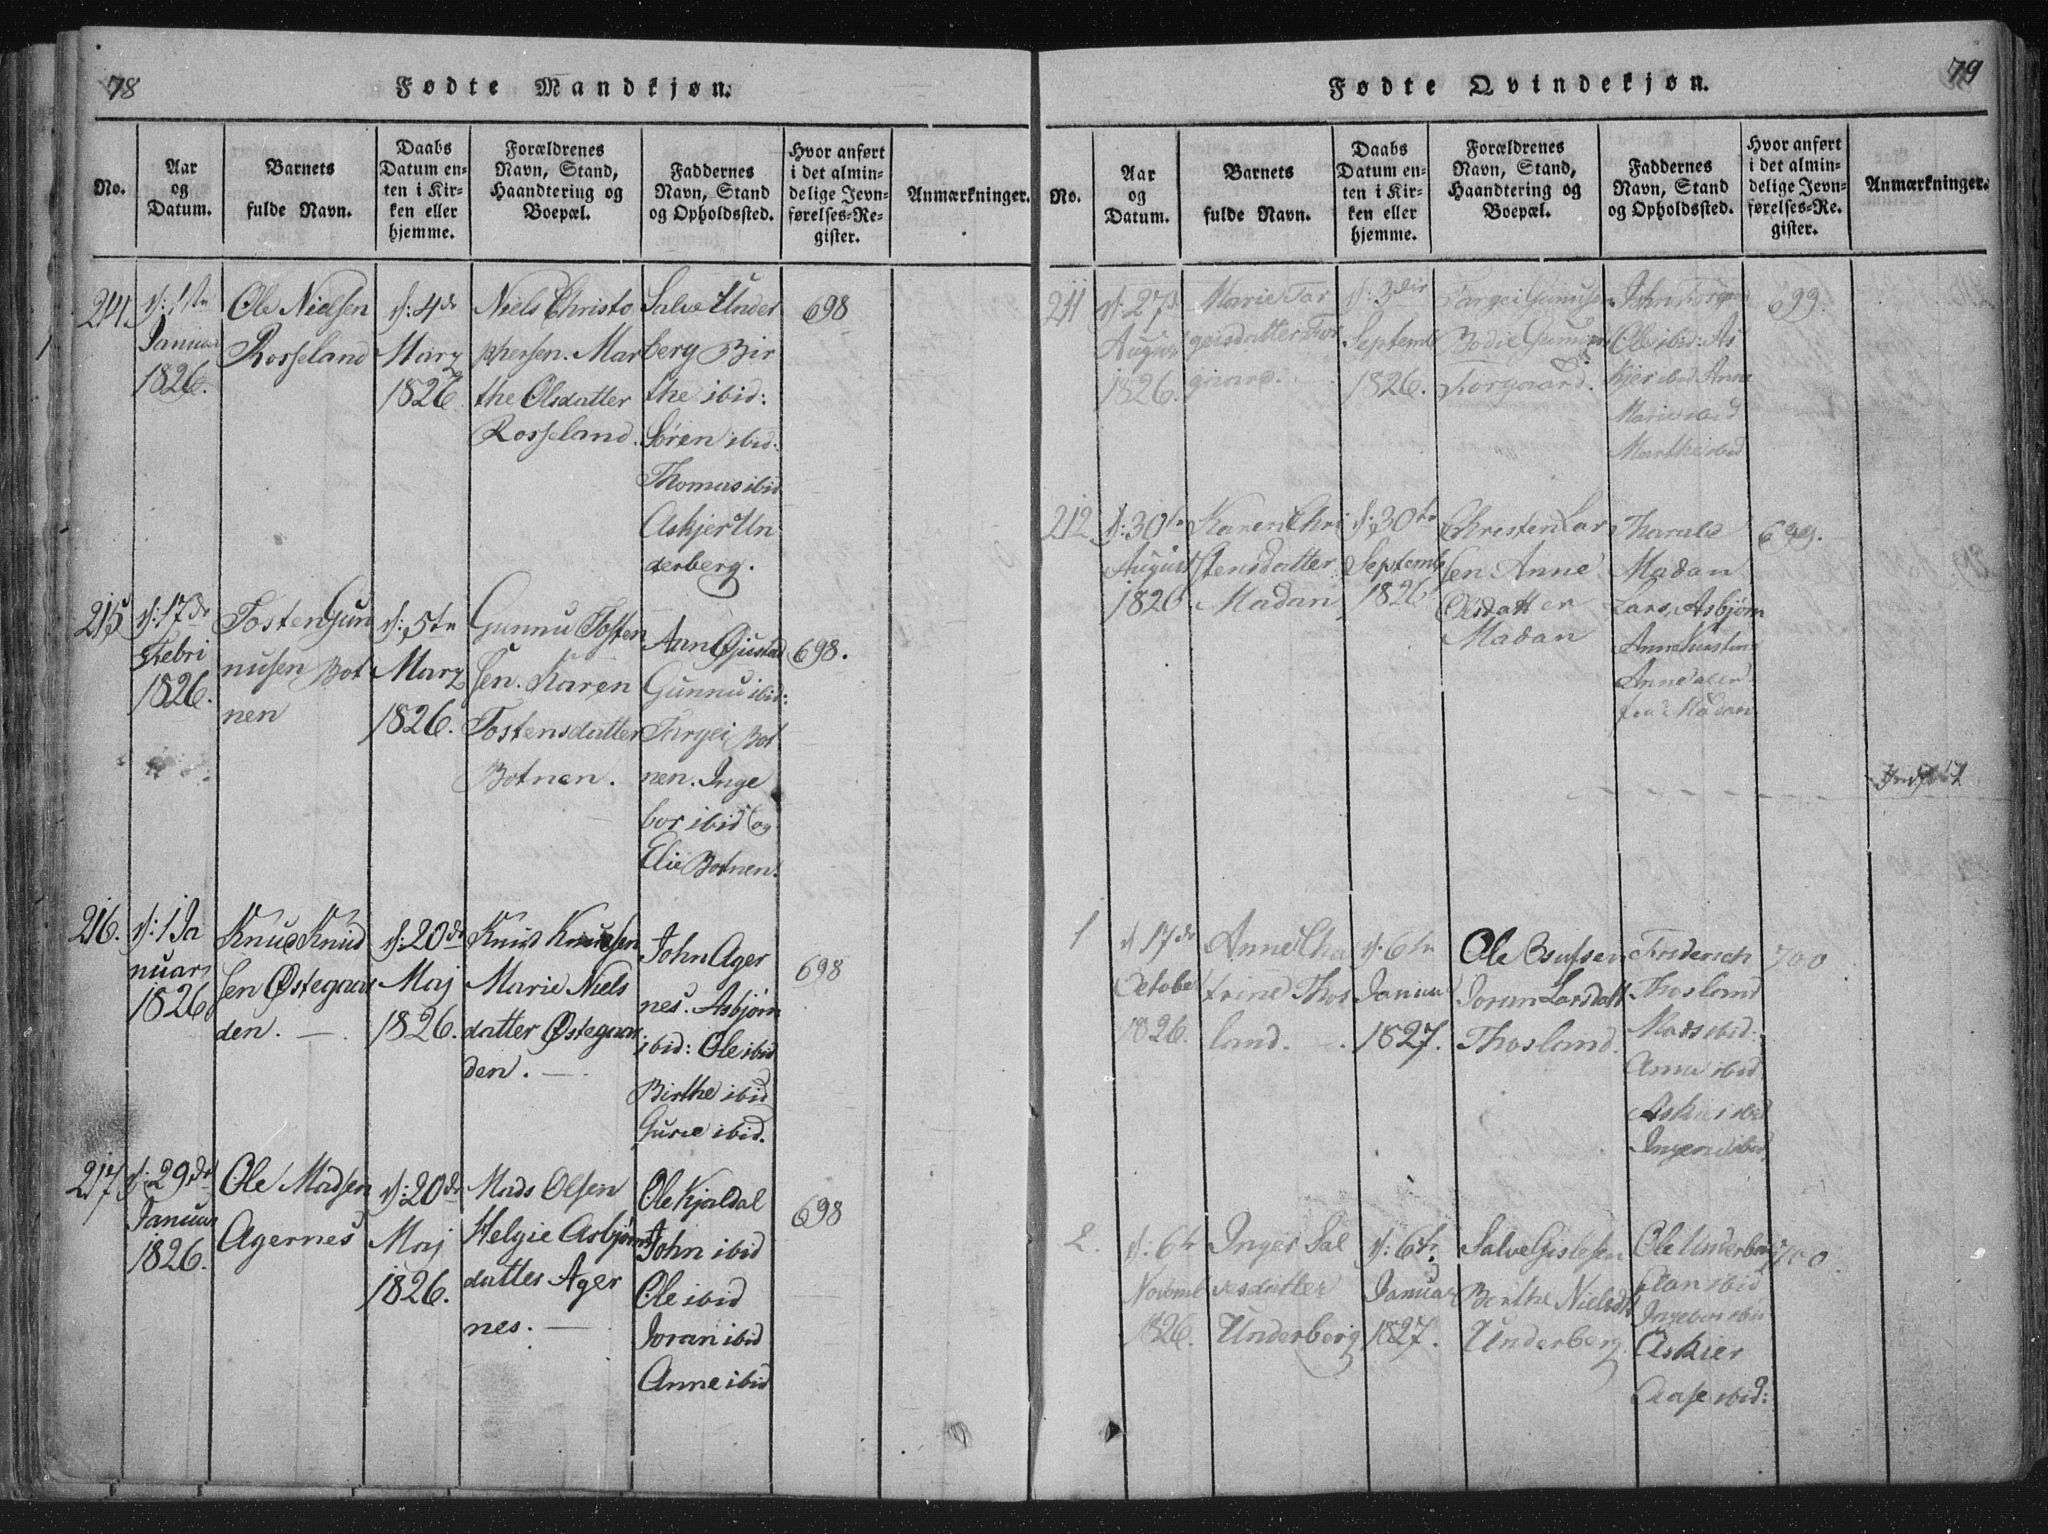 78
Fødte Mandkjøn.
No.
Aar
og
Datum.
Barnets
fulde Navn.
Daabs
Datum en-
ten i Kir-
ken eller
hjemme.
Forældrenes
Navn, Stand,
Haandtering og
Boepæl.
Faddernes
Navn, Stand
og Opholdssted.
Hvor anført
i det almin-
delige Jevn-
førelses-Re-
gister.
Anmærkninger.
214
d: 1te
Januar
1826.
Ole Nielsen
Rosseland
d: 4de
Marz
1826
Niels Christo
phersen. Mar
the Olsdatter
Rosseland.
Salve Under
berg Bir
the ibid:
Søren ibid:
Thomas ibid
Askjer Un
derberg.
698
215
d: 17de
Febri
1826.
Tosten Gun
nusen Bot
nen
d: 5te
Marz
1826.
Gunnu Tosten
sen. Karen
Tostensdatter
Botnen.
Aan Øjustad
Gunnu ibid:
Targei Bot
nen. Inge
bor ibid og
Elie Botnen.
698.
216.
d: 1 Ja
nuar
1826
Knud Knud
sen Østegaar
den. —
d: 20de
Maj
1826.
Knud Knudsen
Marie Niels
datter Østegaar
den. —
John Ager
nes. Asbjørn
ibid: Ole ibid
Birthe ibid
Gurie ibid.
698
217
d: 29de
Januar
1826.
Ole Madsen
Agernes
d: 20de
Maj
1826.
Mads Olsen
Helgie Asbjørns
datter Ager
nes. —
Ole Kjaldal
John ibid
Ole ibid
Joran ibid
Anne ibid
698
79
Fødte Qvindekjøn.
No.
Aar
og
Datum.
Barnets
fulde Navn.
Daabs
Datum en-
ten i Kir-
ken eller
hjemme.
Forældrenes
Navn, Stand,
Haandtering og
Boepæl.
Faddernes
Navn, Stand
og Opholdssted.
Hvor anført
i det almin-
delige Jevn-
førelses-Re-
gister.
Anmærkninger.
211
d: 27de
August
1826.
Marie Tar
geisdatter
d: 3die
Septemb
1826.
Targei Gunusen
Bodil
John
Ole ibid: As
kjer ibid Anne
Marie ibid
Marthe ibid
699.
212
d: 30te
August
1826
Karen Chri
stensdatter
Madan
d: 30te
Septemb
1826
Christen Lar
sen Anne
Olsdatter
Madan
Tharald
Madan
Lars, Asbjørn
Anne
Anne
Madan
699.
1
d 17de
October
1826.
Anne Cha
trine Thos
land. —
d: 6te
Januar
1827.
Ole
Joran Larsdatt
Thosland.
Frederich
Thosland
Mads ibid:
Anna ibid
ibid
Inger ibid.
700
2.
d: 6te
Novemb
1826.
Inger Sal
vesdatter
Underberg
d: 6te
Januar
1827.
Salve Gislesen
Birthe Nielsdt
Underberg
Ole Underber
Aan ibid
Ingebor ibid
Askier
Aase ibid:
700